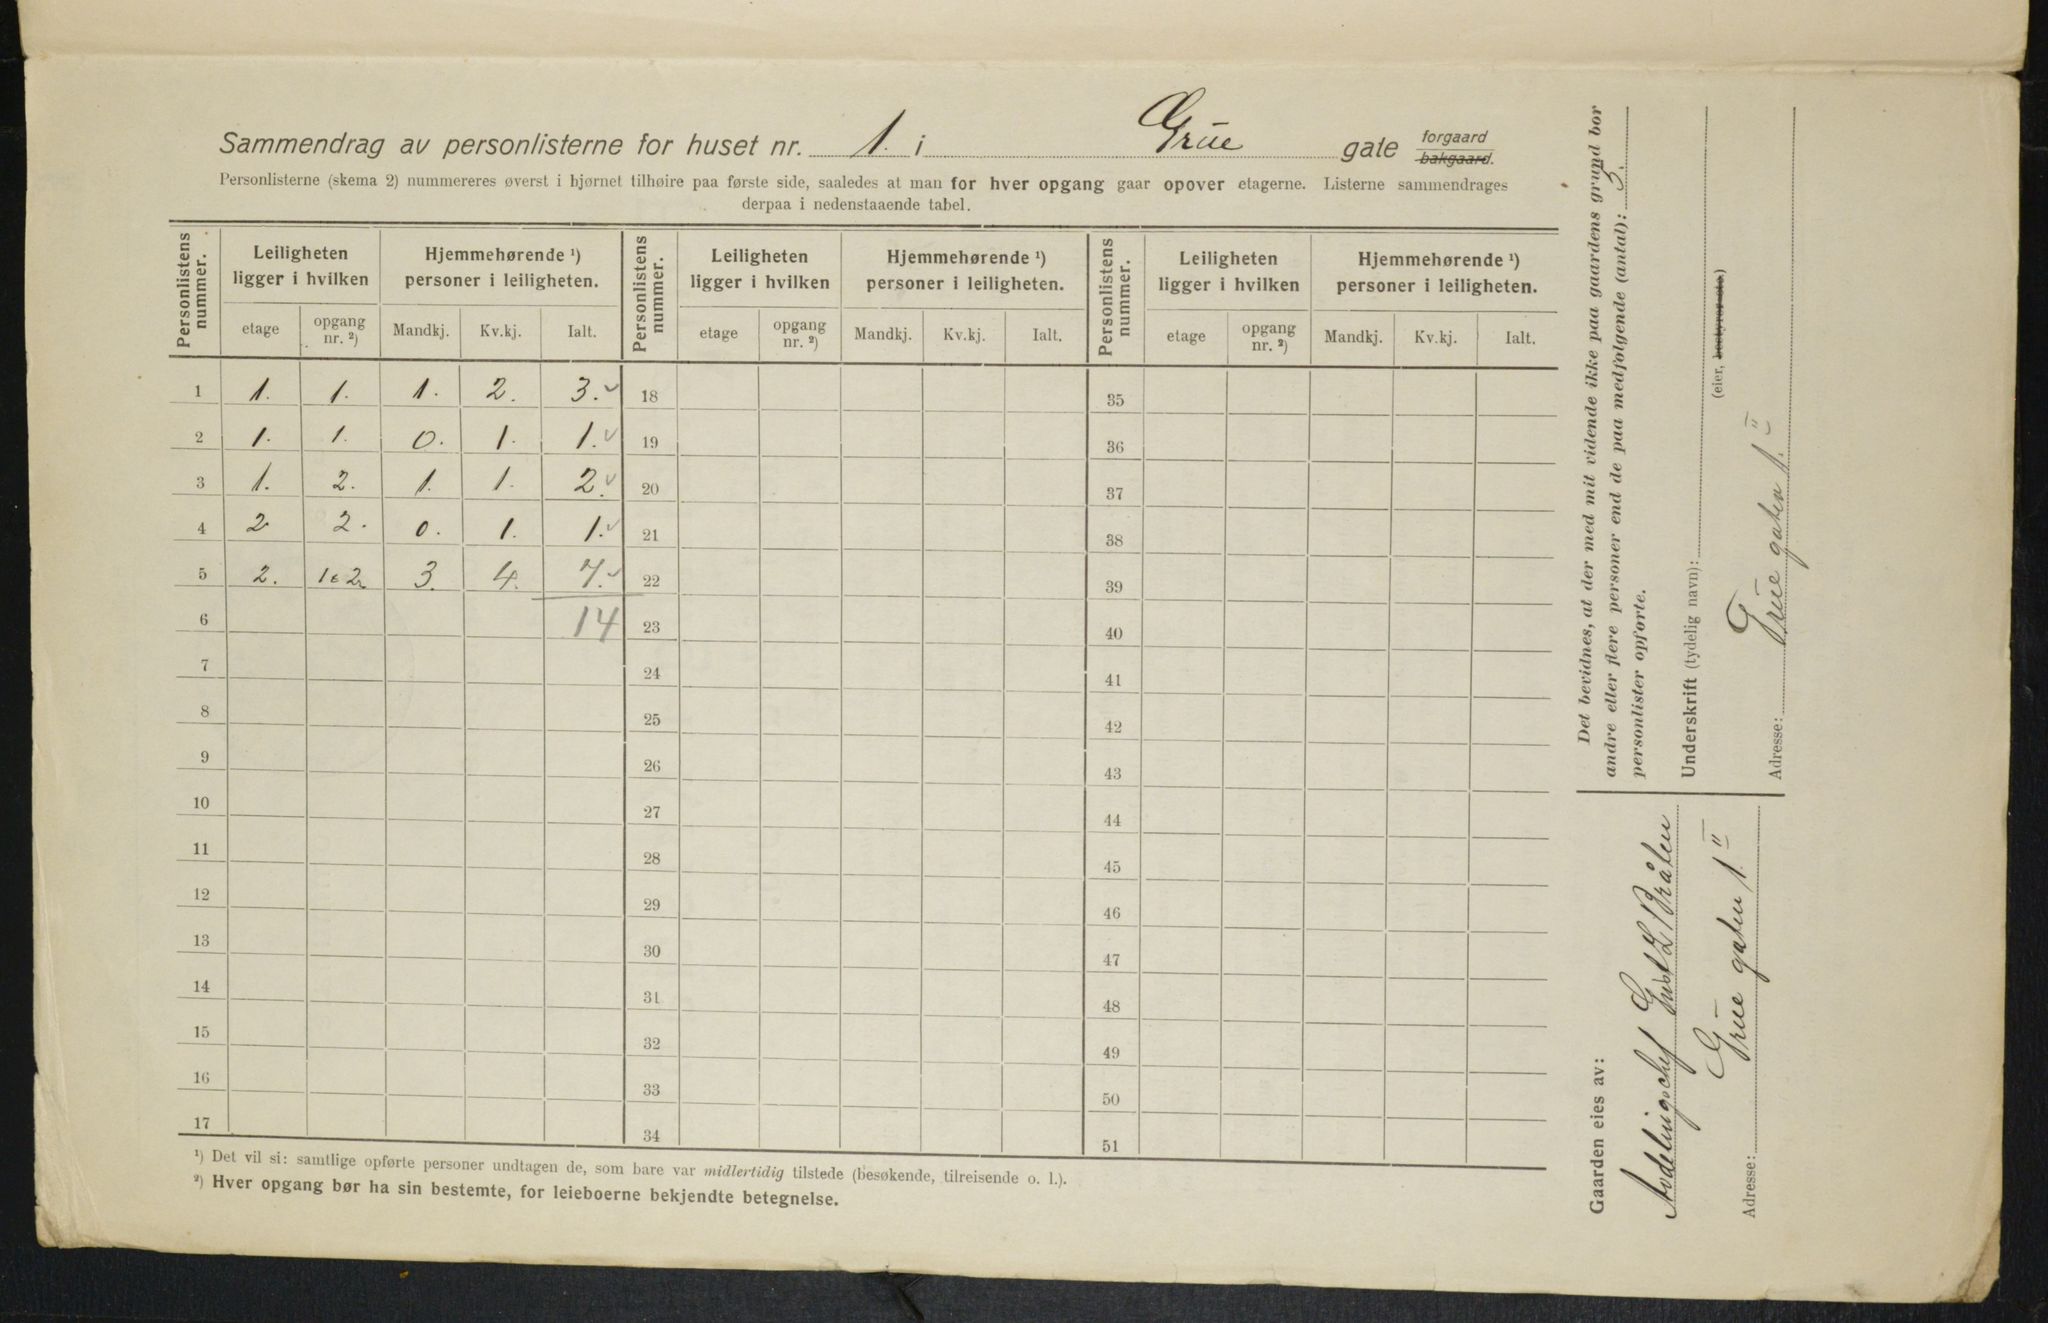 Sammendrag av personlisterne for huset nr. 1. i Grüe gate forgaard bakgaard.
Personlisterne (skema 2) nummereres øverst i hjørnet tilhøire paa første side, saaledes at man for hver opgang gaar opover etagerne. Listerne sammendrages
derpaa i nedenstaaende tabel.
Personlistens nummer. Leiligheten ligger i hvilken Hjemmehørende ¹) personer i leiligheten. Personlistens nummer. Leiligheten ligger i hvilken Hjemmehørende ¹) personer i leiligheten. Personlistens nummer. Leiligheten ligger i hvilken Hjemmehørende ¹) personer i leiligheten.
etage opgang nr. ²) Mandkj. Kv.kj. Ialt. etage opgang nr. ²) Mandkj. Kv.kj. Ialt. etage opgang nr. ²) Mandkj. Kv.kj. Ialt.
1 1. 1. 1. 2. 3. 18 35
2 1. 1. 0. 1. 1. 19 36
3 1. 2. 1. 1. 2. 20 37
4 2 2. 0. 1. 1. 21 38
5 2. 1 & 2 3. 4. 7. 22 39
6 14 23 40
7 24 41
8 25 42
9 26 43
10 27 44
11 28 45
12 29 46
13 30 47
14 31 48
15 32 49
16 33 50
17 34 51
¹) Det vil si: samtlige opførte personer undtagen de, som bare var midlertidig tilstede (besøkende, tilreisende o. l.).
²) Hver opgang bør ha sin bestemte, for leieboerne bekjendte betegnelse.
Det bevidnes, at der med mit vidende ikke paa gaardens grund bor
andre eller flere personer end de paa medfølgende (antal): 3.
personlister opførte.
Underskrift (tydelig navn):
(eier, bestyrer etc.)
Adresse: Grüe gaten 1. II
Gaarden eies av:
Avdelingschef Gust Z Bråten
Adresse: Grüe gaten 1. II